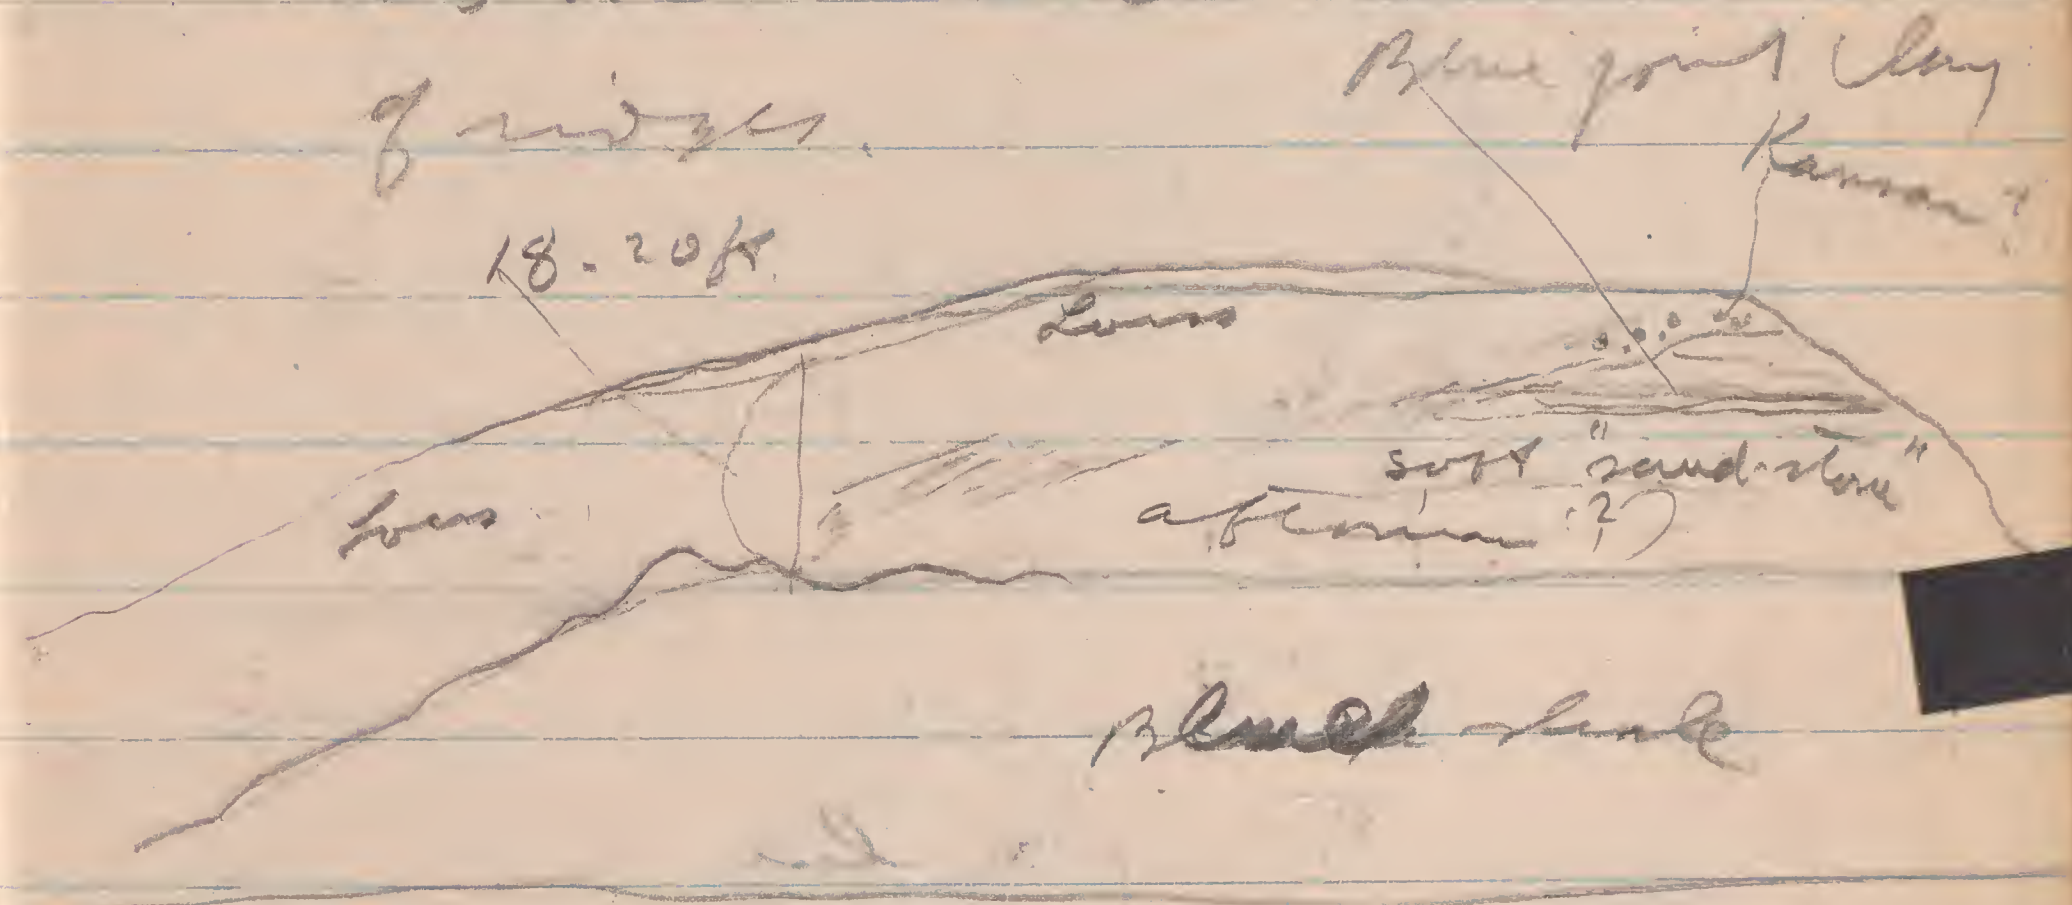 of ridges.
Blue joint clay
Kansan?
18-20 ft.
Loess
Loess
soft "sand-stone"
aftonian (?)
Black shale